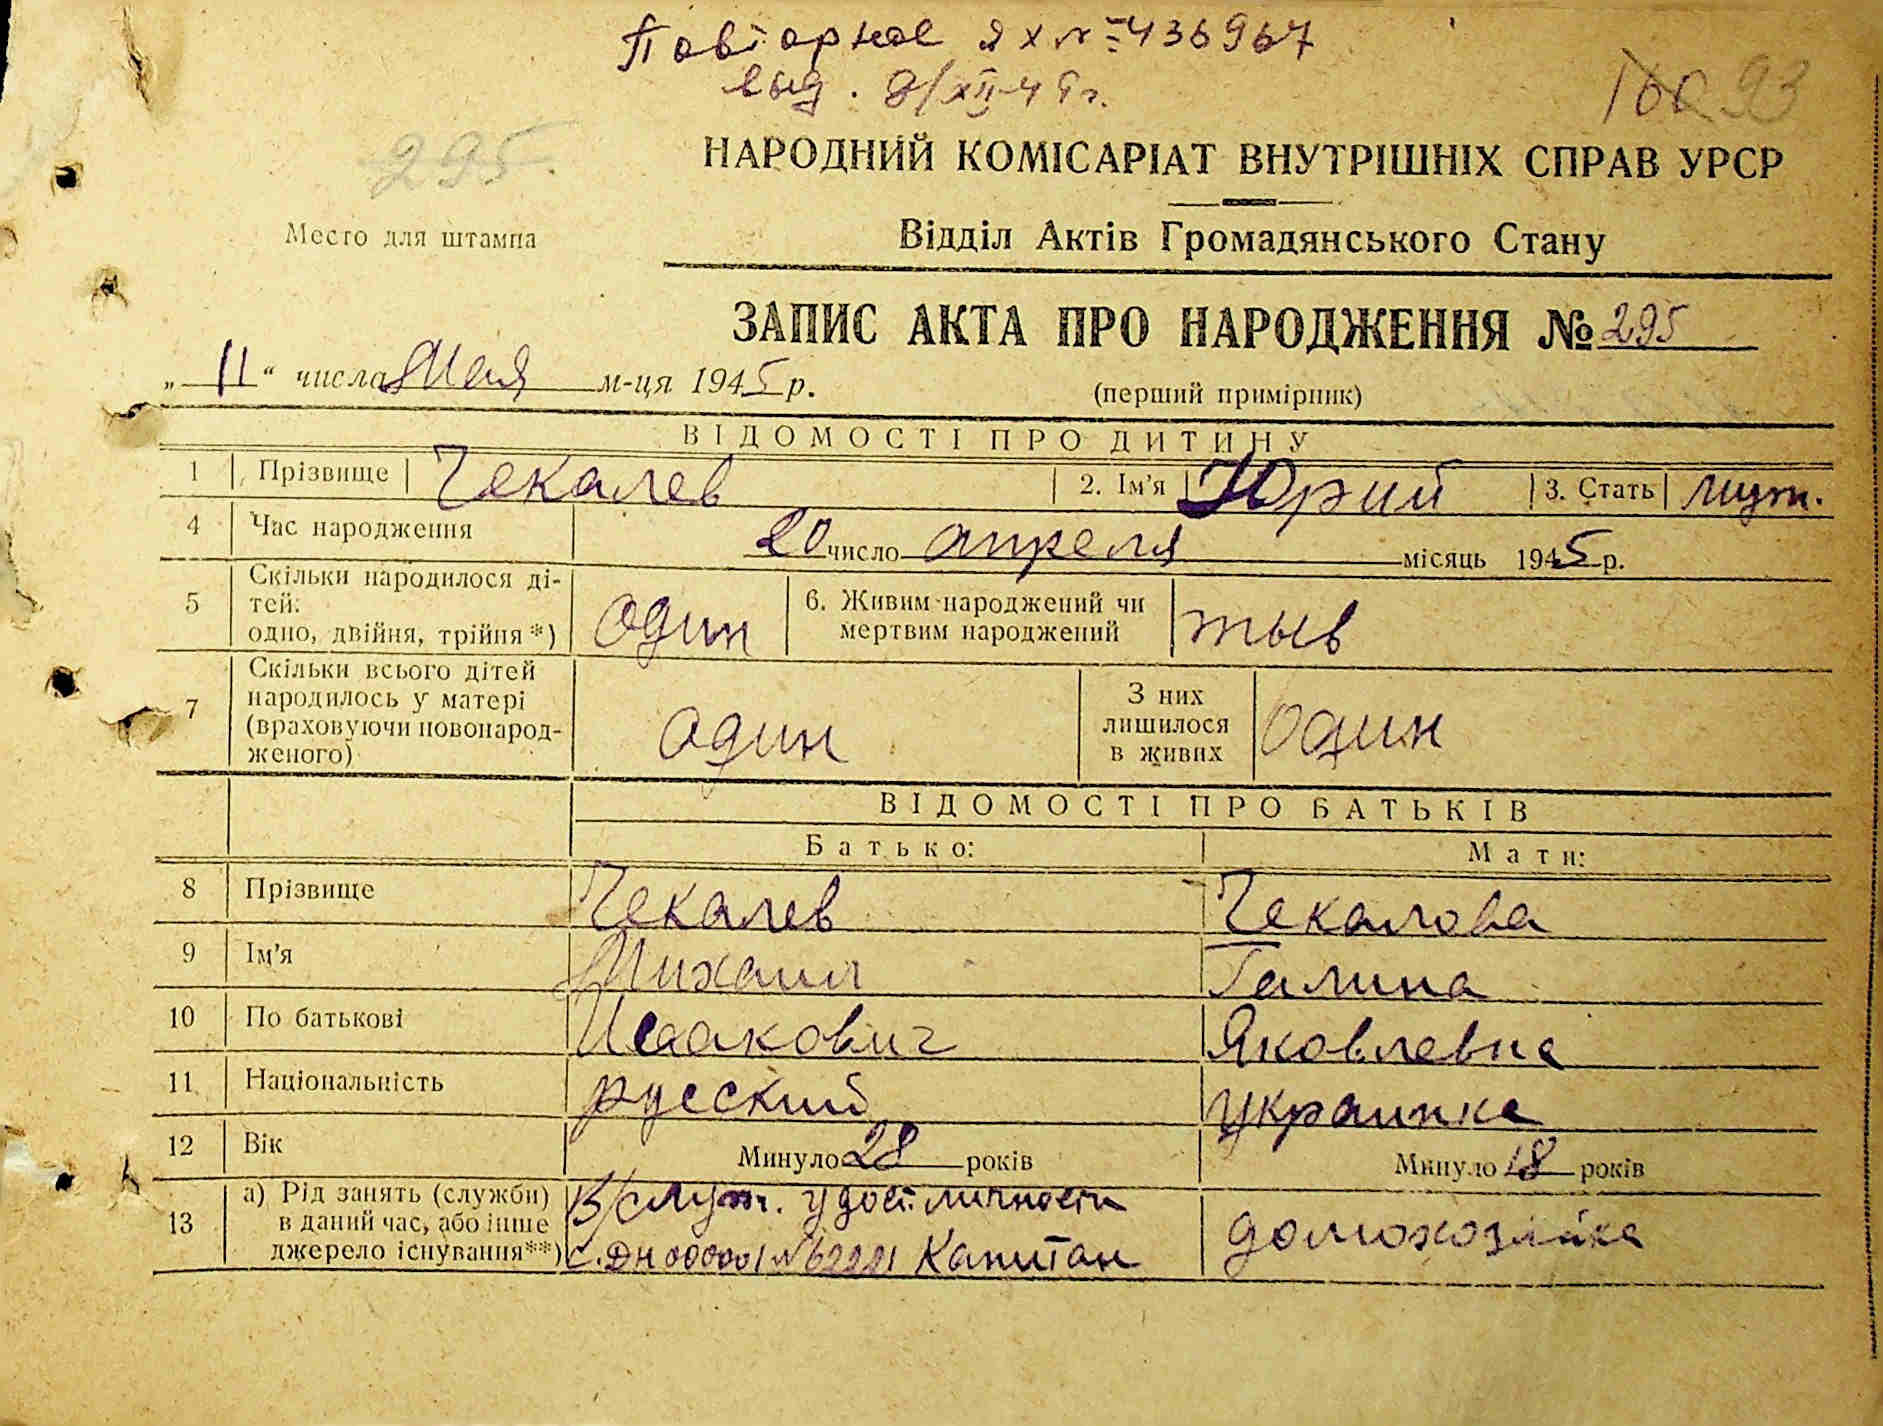 Повторное я х № 436967
выд. 8/XII-49г.
100 93
295.
НАРОДНИЙ КОМІСАРІАТ ВНУТРІШНІХ СПРАВ УРСР
Место для штампа
Відділ Актів Громадянського Стану
ЗАПИС АКТА ПРО НАРОДЖЕННЯ № 295
„ 11 “ числа Мая м-ця 1945 р.
(перший примірник)
ВІДОМОСТІ ПРО ДИТИНУ
1 Прізвище Чекалев 2. Ім'я Юрий 3. Стать муж.
4 Час народження 20 число апреля місяць 1945 р.
5 Скільки народилося ді-
тей:
одно, двійня, трійня*) один
6. Живим народжений чи
мертвим народжений жыв
7 Скільки всього дітей
народилось у матері
(враховуючи новонарод-
женого) один
З них
лишилося
в живих один
ВІДОМОСТІ ПРО БАТЬКІВ
Батько: Мати:
8 Прізвище Чекалев Чекалова
9 Ім'я Михаил Галина
10 По батькові Исаакович Яковлевна
11 Національність русский украинка
12 Вік Минуло 28 років Минуло 18 років
13 а) Рід занять (служби)
в даний час, або інше
джерело існування**)
В/служ. удост. личности
с. ДН 000001 № 62221 Капитан
домохозяйка